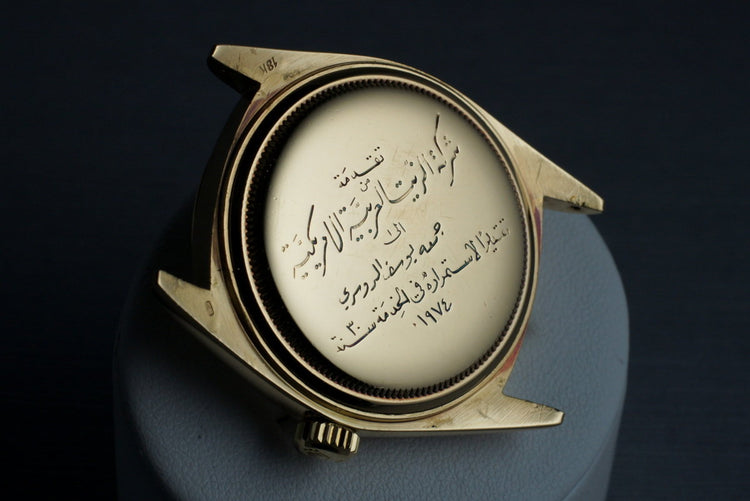 تقدمة
من
شركة الزيت العربية الامريكية
الى
جمعه يوسف الدوسري
تقديرًا لاستمراره في الخدمة ٣٠ سنة
١٩٧٤
18K